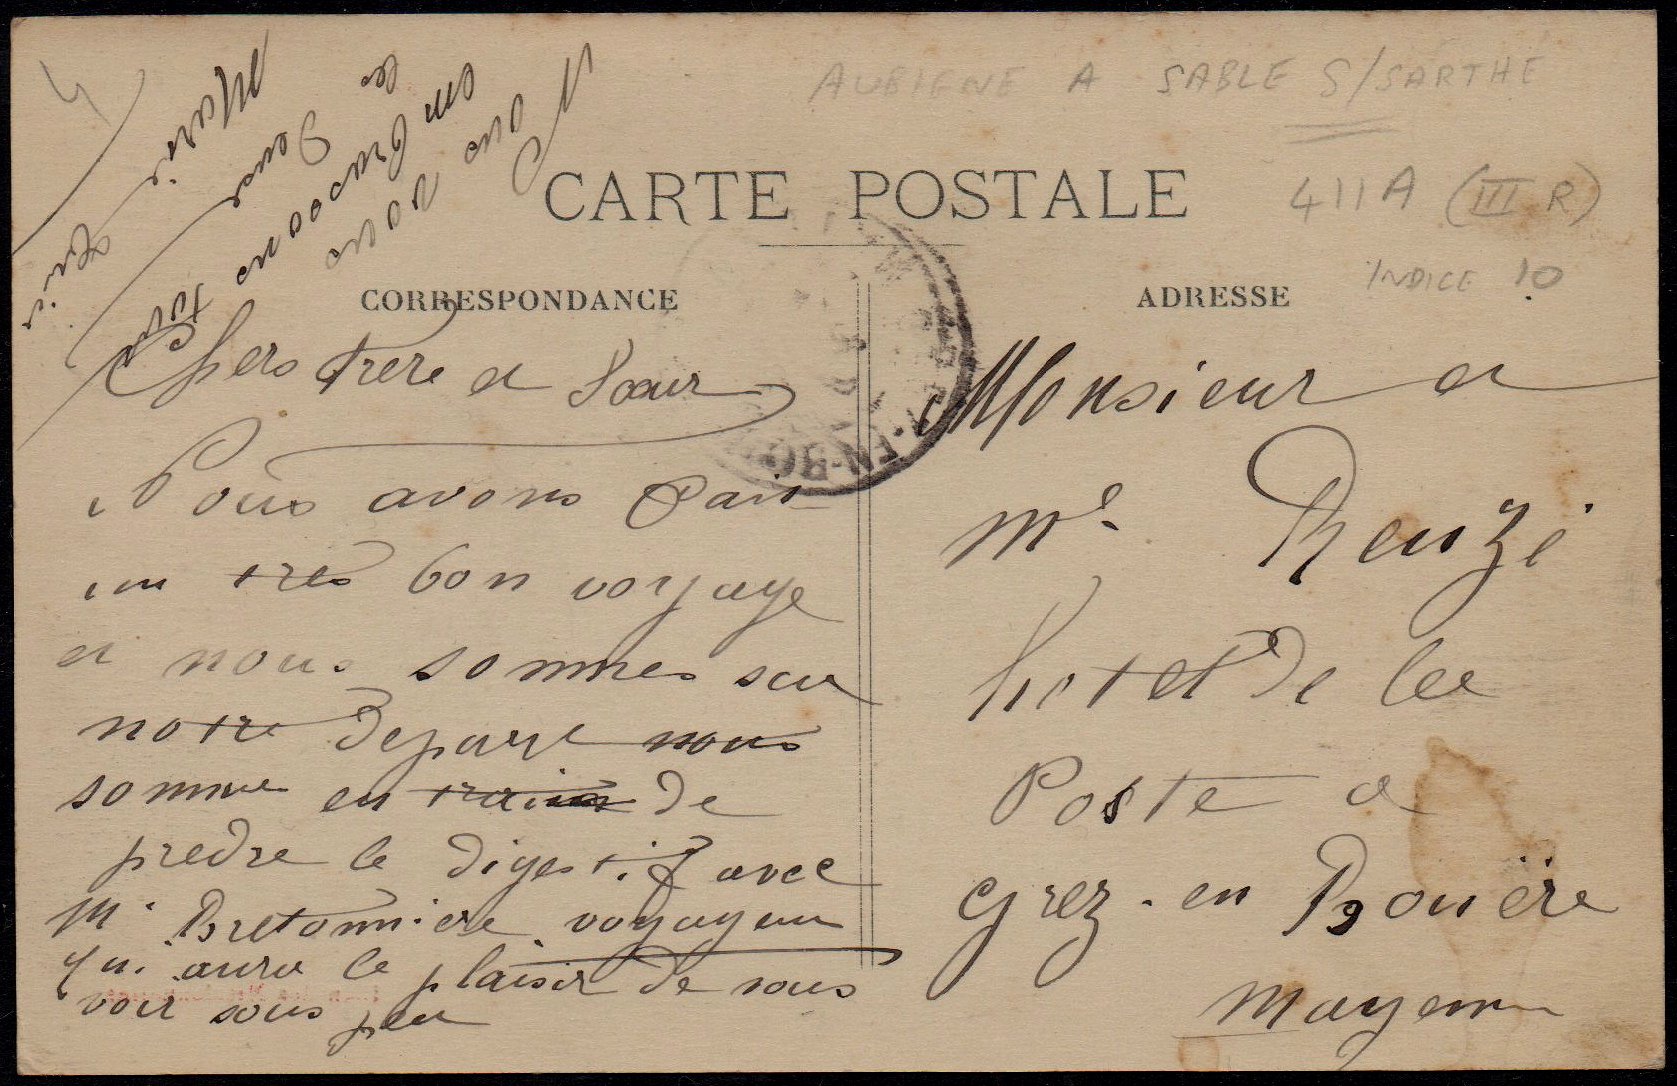 AUBIGNE A SABLE S/SARTHE
CARTE POSTALE
411A (III R)
INDICE 10
CORRESPONDANCE
ADRESSE
Chers frere et Sœur
Nous avons fait
un tres bon voyage
et nous sommes sur
notre depart nous
somme en train de
predre le digestif avec
Mr Bretonniere voyageur
qui aura le plaisir de vous
voir sous peu
Nous vous
embrassons tous
les Deux
Monsieur et
Me Renzi
hotel de la
Poste a
Grez-en Bouëre
Mayenne
EN-BO